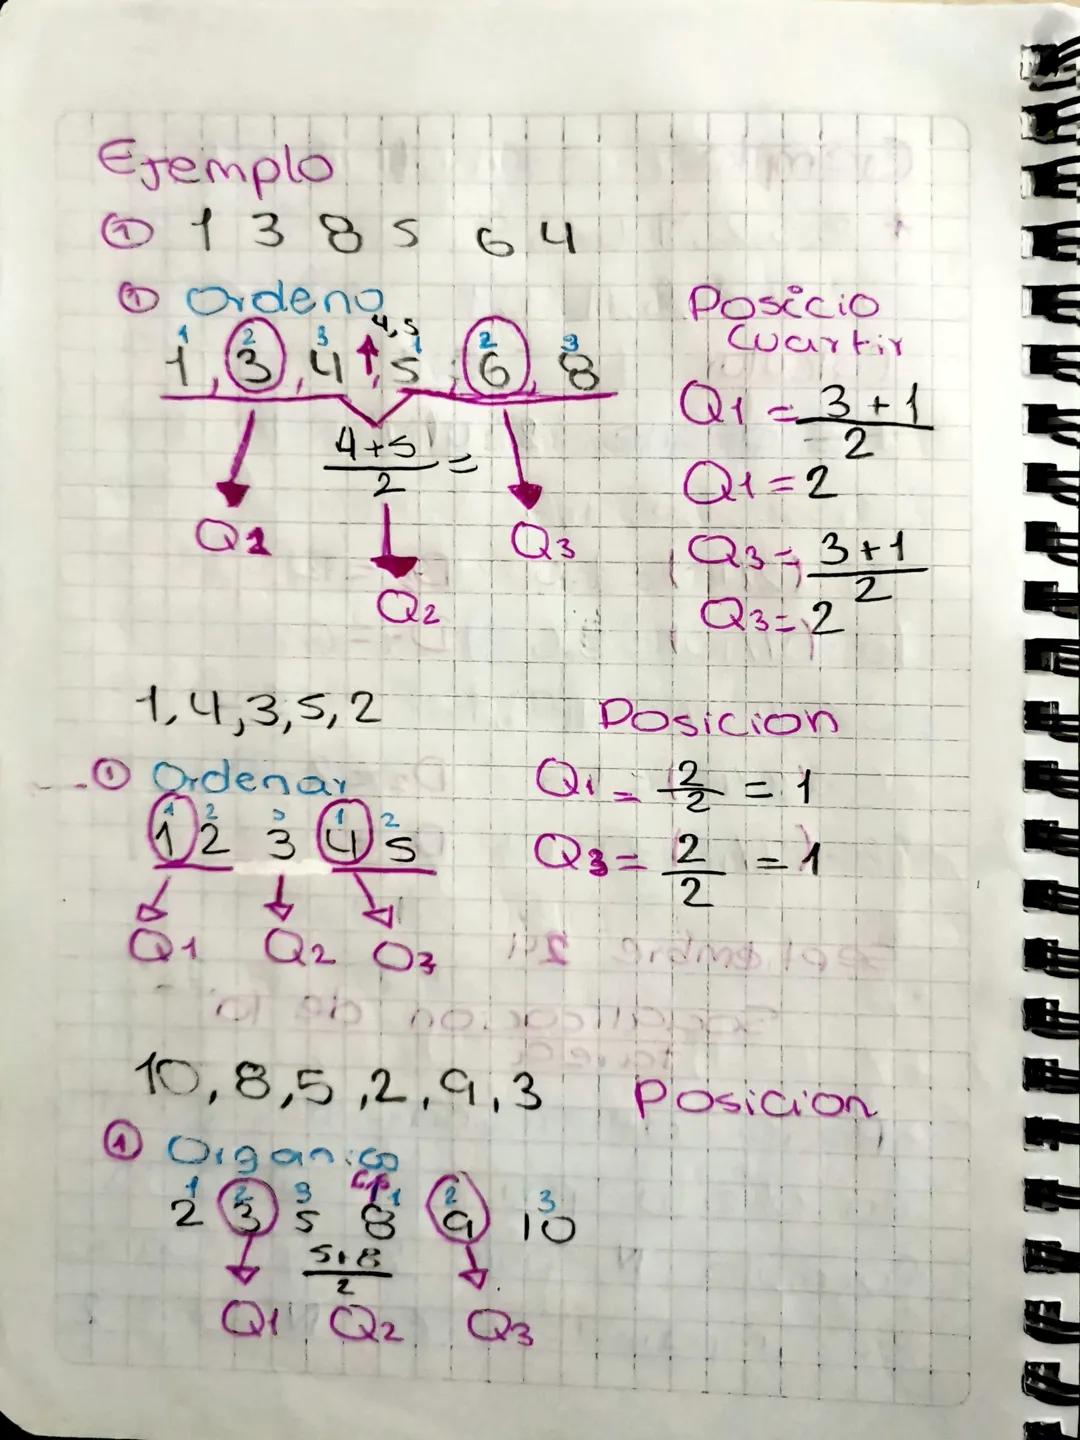 Ejemplo
① 1 3 8 5 6 4
① Ordeno
4,5
1 2 3 1 2 3
1, 3, 4, 5, 6, 8
4+5
2
=
Q1
Q3
Q2
Posicio
Cuartir
Q1 = 3+1
2
Q1 = 2
Q3 = 3+1
2
Q3 = 2
1,4,3,5,2
① Ordenar
1 2 3 1 2
1 2 3 4 5
Q1 Q2 Q3
Posicion
Q1 = 2
2
= 1
Q3 = 2
2
= 1
10,8,5,2,9,3
Posicion
① Organico
1 2 3 1 2 3
2 3 5 8 9 10
5+8
2
Q1 Q2 Q3